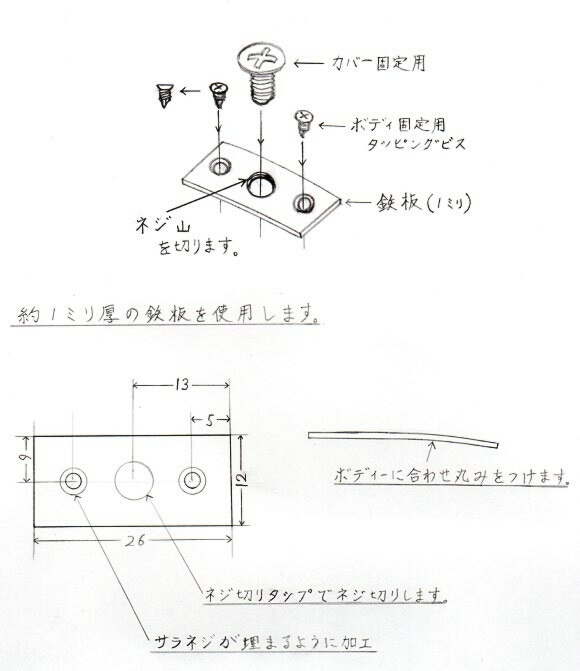 カバー固定用
ボディ固定用
タッピングビス
鉄板(1ミリ)
ネジ山
を切ります。
約1ミリ厚の鉄板を使用します。
13
5
9
12
26
ボディーに合わせ丸みをつけます。
ネジ切りタップでネジ切りします。
サラネジが埋まるように加工